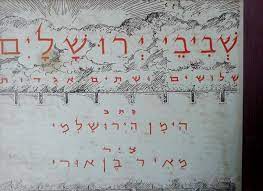 שְׁבִיבֵי יְרוּשָׁלַיִם
שלושים ושתים אגדות
כתב
הימן הירושלמי
ציר
מאיר בן אורי